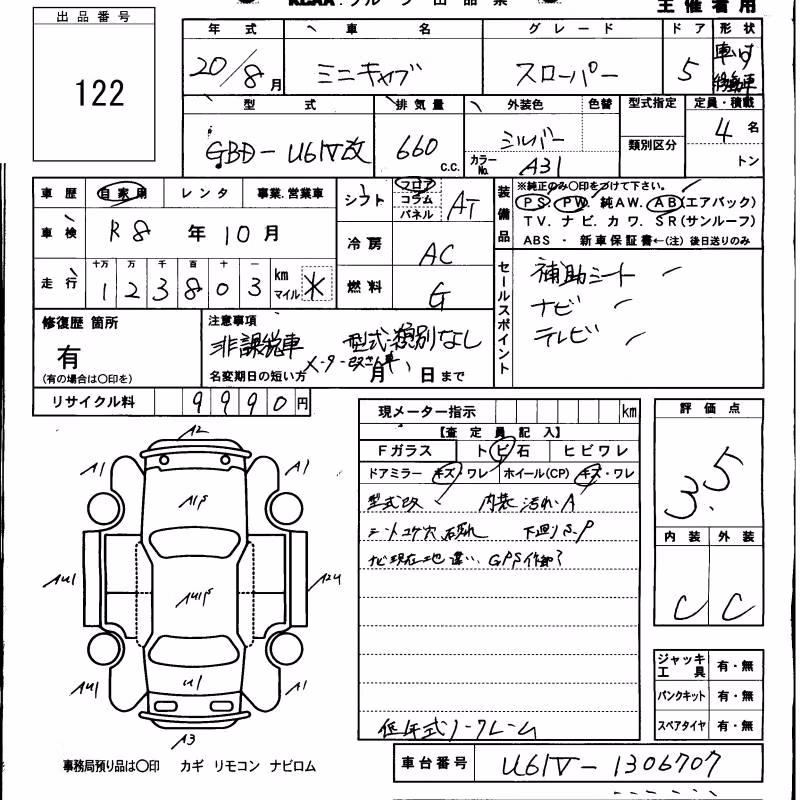 出品票
主催者用
出品番号
122
年式 車名 グレード ドア 形状
20/8月 ミニキャブ スローパー 5 車いす移動車
型式 排気量 外装色 色替 型式指定 定員・積載
GBD-U61V改 660c.c. シルバー 類別区分 4名
カラーNo. A31 トン
車歴 自家用 レンタ 事業.営業車
シフト フロア コラム パネル AT
装備品
※純正のみ〇印をつけて下さい。
PS. PW. 純AW. AB(エアバック)
TV. ナビ. カワ. SR(サンルーフ)
ABS ・ 新車保証書←(注) 後日送りのみ
車検 R8年10月
冷房 AC
走行 十万 万 千 百 十 一
123803 km マイル
燃料 G
セールスポイント
補助シート
ナビ
テレビ
修復歴 箇所
有
(有の場合は〇印を)
注意事項
非課税車 型式・類別なし
名変期日の短い方 月 日まで
リサイクル料 9990円
現メーター指示 km
【査定員記入】
Fガラス トビ石 ヒビワレ
ドアミラー キズ・ワレ ホイール(CP) キズ・ワレ
型式改 内装汚れ・A
下廻りS.P
ナビ現在地違い、GPS作動?
低年式ノークレーム
評価点
3.5
内装 外装
C C
ジャッキ工具 有・無
パンクキット 有・無
スペアタイヤ 有・無
A2
A1 A1
A1P
AU1 AU1P A2U
AU1 U1 A1
A3
事務局預り品は〇印 カギ リモコン ナビロム
車台番号 U61V-1306707